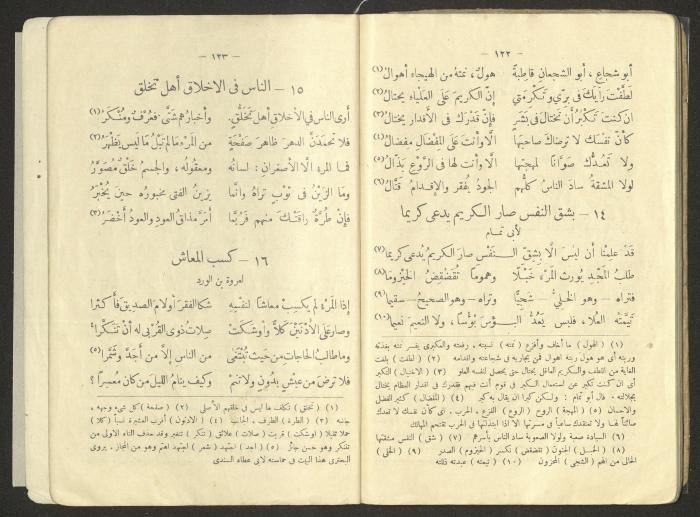 — ١٢٢ —
أبو شجاع ، أبو الشجعان قاطبة هول ، نمته من الهيجاء أهوال (١)
لطَّفْت رأيك في بِرّي وتكرمتي إنّ الكريم على العلياء يحتال (٢)
ان كنت تكبر أن تختال في بشر فإن قدرك في الأقدار يختال (٣)
كأن نفسك لا ترضاك صاحبها الا وأنت على المفضال مفضال (٤)
ولا تعدّك صوّانا لمهجتها الا وأنت لها في الروع بذّال (٥)
لولا المشقة ساد الناس كلهم الجود يفقر والإقدام قتّال (٦)
١٤ — بشق النفس صار الكريم يدعى كريما
لأبي تمام
قد علمنا أن ليس الا بشق النفس صار الكريم يُدعى كريما (٧)
طلب المجد يورث المرء خبلا وهموما تقضقض الحيزوما (٨)
فتراه — وهو الخليّ — شجيّا وتراه — وهو الصحيح — سقيما (٩)
تيمته العلا ، فليس يعدّ البؤس بؤسا ، ولا النعيم نعيما (١٠)
(١) (الهول) ما أخاف وأفزع (نمته) نسبته ، رفعته والعكبرى يفسر نمته بغذته
وربته أى هو هول ربته اهوال فمن يحاربه في شجاعته واقدامه (٢) لطفت : بلغت
الغاية من اللطف والكريم العاقل يحتال حتى يحصل لنفسه العلو (٣) الاختيال (التكبر
أى ان كنت تكبر عن استعمال الكبر في قوم أنت فيهم فقدرك في اقدار العظام يختال
بجلالته . قال أبو تمام : ولسكن كبرا ان يقال به كبر (٤) (المفضال) كثير الفضل
والاحسان (٥) (المهجة) الروح (الروع) الفزع ، الحرب . أى كأن نفسك لا تعدك
صائناً لها ولا تعتقدك ساعياً في مسرتها الا اذا ابتذلتها في الحرب تقتحم المهالك
(٦) السيادة صعبة ولولا الصعوبة ساد الناس بأسرهم (٧) (شق) النفس مشقتها
(٨) (الخبل) الجنون (تقضقض) تكسر (الحيزوم) الصدر (٩) (الخلي)
الخالى من الهم (الشجي) المحزون (١٠) (تيمته) عبدته ذللته
— ١٢٣ —
١٥ — الناس في الاخلاق أهل تخلق
أرى الناس في الأخلاق أهل تخلّق وأخبارهم شتّى فعُرْف ومنكر (١)
فلا تحمدنّ الدهر ظاهر صفحة من المرء ما لم تبل ما ليس يظهر (٢)
فما المرء الا الأصغران : لسانه ومعقوله ، والجسم خلق مصوّر
وما الزين في ثوب تراه وانّما يزين الفتى مخبوره حين يُخبر
فإن طُرّة راقتك منهم فربّما أمرّ مذاق العود والعود أخضر (٣)
١٦ — كسب المعاش
لعروة بن الورد
إذا المرء لم يكسب معاشا لنفسه شكا الفقر أو لام الصديق فأكثرا
وصار على الأدْنَيْن كلّا وأوشكت صلات ذوى القربى له أن تنكّرا (٤)
وما طالب الحاجات من حيث تُبتغى من الناس إلا من أجدّ وشمّرا (٥)
فلا ترض من عيش بدون ولا تنم وكيف ينام الليل من كان معسرا ؟
(١) (تخلق) تكلف ما ليس في خلقهم الأصلى (٢) (صفحة) كل شىء وجهه ،
جانبه (٣) (الطرة) الطرف ، الجانب (٤) (الادنون) أقرب العشيرة نسباً (كلا)
حملا ثقيلا (أوشكت) قربت (صلات) علائق (تنكر) تتغير وقد حذف التاء الاولى من
تتنكر وهو حسن جائز (٥) (اجد) اجتهد (شمر) اجتهد اهتم وهو من المجاز . يروى
البحترى هذا البيت في حماسته لأبى عطاء السندى